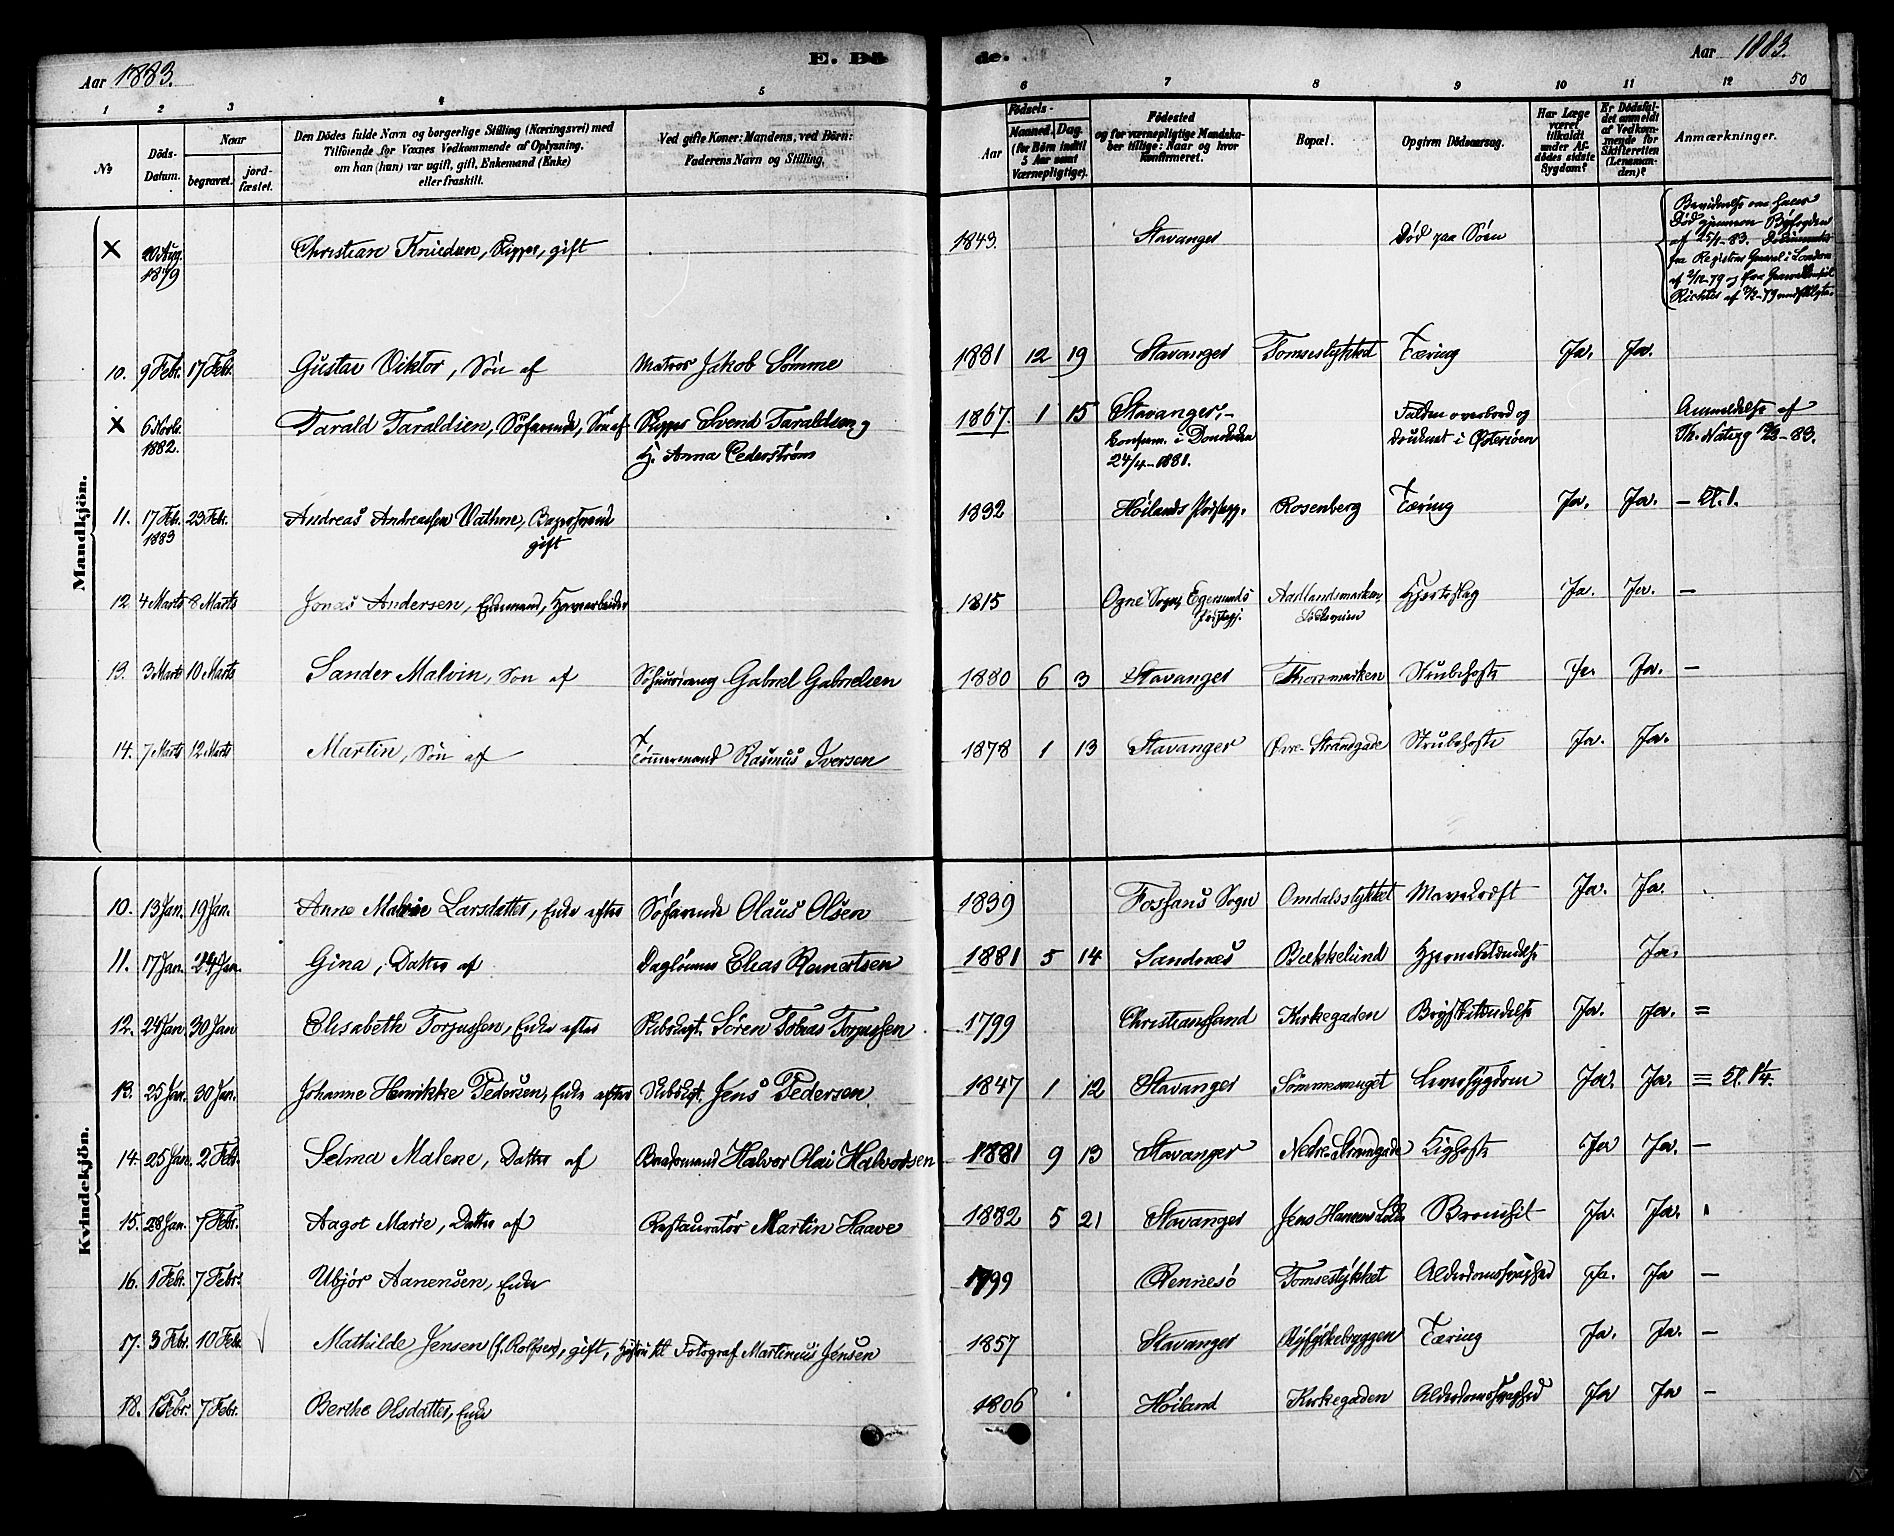 Aar 1883. E. Dö de. Aar 1883.
50
1 2 3 4 5 6 7 8 9 10 11 12
№ Döds-Datum. Naar begravet. jord-fæstet. Den Dödes fulde Navn og borgerlige Stilling (Næringsvei) med Tilföiende for Voxnes Vedkommende af Oplysning, om han (hun) var ugift, gift, Enkemand (Enke) eller fraskilt. Ved gifte Koner: Mandens, ved Börn: Faderens Navn og Stilling. Födsels- Aar Maaned. Dag. (for Börn indtil 5 Aar samt Værnepligtige). Födested og for værnepligtige Mandska-ber tillige: Naar og hvor konfirmeret. Bopæl. Opgiven Dödsaarsag. Har Læge været tilkaldt under Af-dödes sidste Sygdom? Er Dödsfal-det anmeldt af Vedkom-mende for Skifteretten (Lensman-den)? Anmærkninger.
Mandkjön.
X 20 Aug. 1879 Christian Knudsen, Skipper, gift 1843. Stavanger Död paa Söen
af 25/1-83. fra Registrar General i London
10. 9 Febr. 17 Febr. Gustav Viktor, Sön af Matros Jakob Sømme 1881 12 19 Stavanger Tomsestykket Tæring Ja. Ja.
X 6 Novbr. 1882. Tarald Taraldsen, Söfarende, Sön af Skipper Svend Taraldsen og H. Anna Cederstrøm 1867. 1 15 Stavanger,- konfirm. i 24/4-1881. Falden overbord og druknet i Østersöen Anmeldelse af
11. 17 Febr. 1883 23 Febr. Andreas Andreassen Vathne, gift 1832 Höilands Præstegj. Rosenberg Tæring Ja. Ja. -
12 4 Marts 8 Marts Jonas Andersen, Enkemand, Havnearbeider 1815 Ogne Sogn, Egersunds Præstegj. Aadlandsmarken, Hjerteslag Ja. Ja. -
13. 3 Marts 10 Marts Sander Malvin, Sön af Gabriel Gabrielsen 1880 6 3 Stavanger Strubehoste Ja. Ja. -
14. 7 Marts 12 Marts Martin, Sön af Tömmermand Rasmus Iversen 1878 1 13 Stavanger Øvre Strandgade Strubehoste Ja. Ja.
Kvindekjön.
10. 13 Jan. 19 Jan. Anne Malene Larsdatter, Enke efter Söfarende Olaus Olsen 1839 Fossans Sogn Omdalsstykket Mavekræft Ja. Ja.
11. 17 Jan. 24 Jan. Gina, Datter af Daglönner Elias Reinertsen 1881 5 14 Sandnes Bækkelund Hjernebetændelse Ja.
12. 24 Jan 30 Jan Elisabeth Torjussen, Enke efter Skibsbygt. Sören Tobias Torjussen 1799 Christianssand Kirkegaden Brystbetændelse Ja. Ja. =
13. 25 Jan. 30 Jan. Johanne Henrikke Pedersen, Enke efter Skibsbygt. Jens Pedersen. 1847 1 12 Stavanger Sömmesmuget Ja. Ja. =
14. 25 Jan. 2 Febr. Selma Malene, Datter af Halvor Olai Halvorsen 1881 9 13 Stavanger Nedre Strandgade Kighoste Ja Ja. -
15. 28 Jan. 7 Febr. Aagot Marie, Datter af Restauratör Martin Haave 1882 5 21 Stavanger Bronchit Ja. Ja.
16. 1 Febr. 7 Febr. Ubjör Aanensen, Enke 1799 Rennesö Tomsestykket Alderdomssvaghed Ja. Ja -
17. 3 Febr. 10 Febr. √ Mathilde Jensen (f. Rolfsen), gift, Hustru til Fotograf Martinius Jensen 1857 Stavanger Ryfylkebryggen Tæring Ja. Ja. -
18. 1 Febr. 7 Febr. Berthe Olsdatter, Enke 1806 Höiland Kirkegaden Alderdomssvaghed Ja Ja -